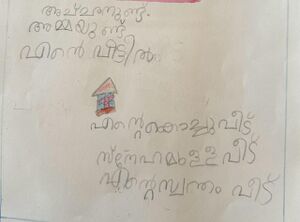 അച്ഛനുണ്ട്.
അമ്മയുണ്ട്
എൻ്റെ വീട്ടിൽ
എൻ്റെകൊച്ചുവീട്
സ്നേഹമുള്ള വീട്
എൻ്റെസ്വന്തം വീട്